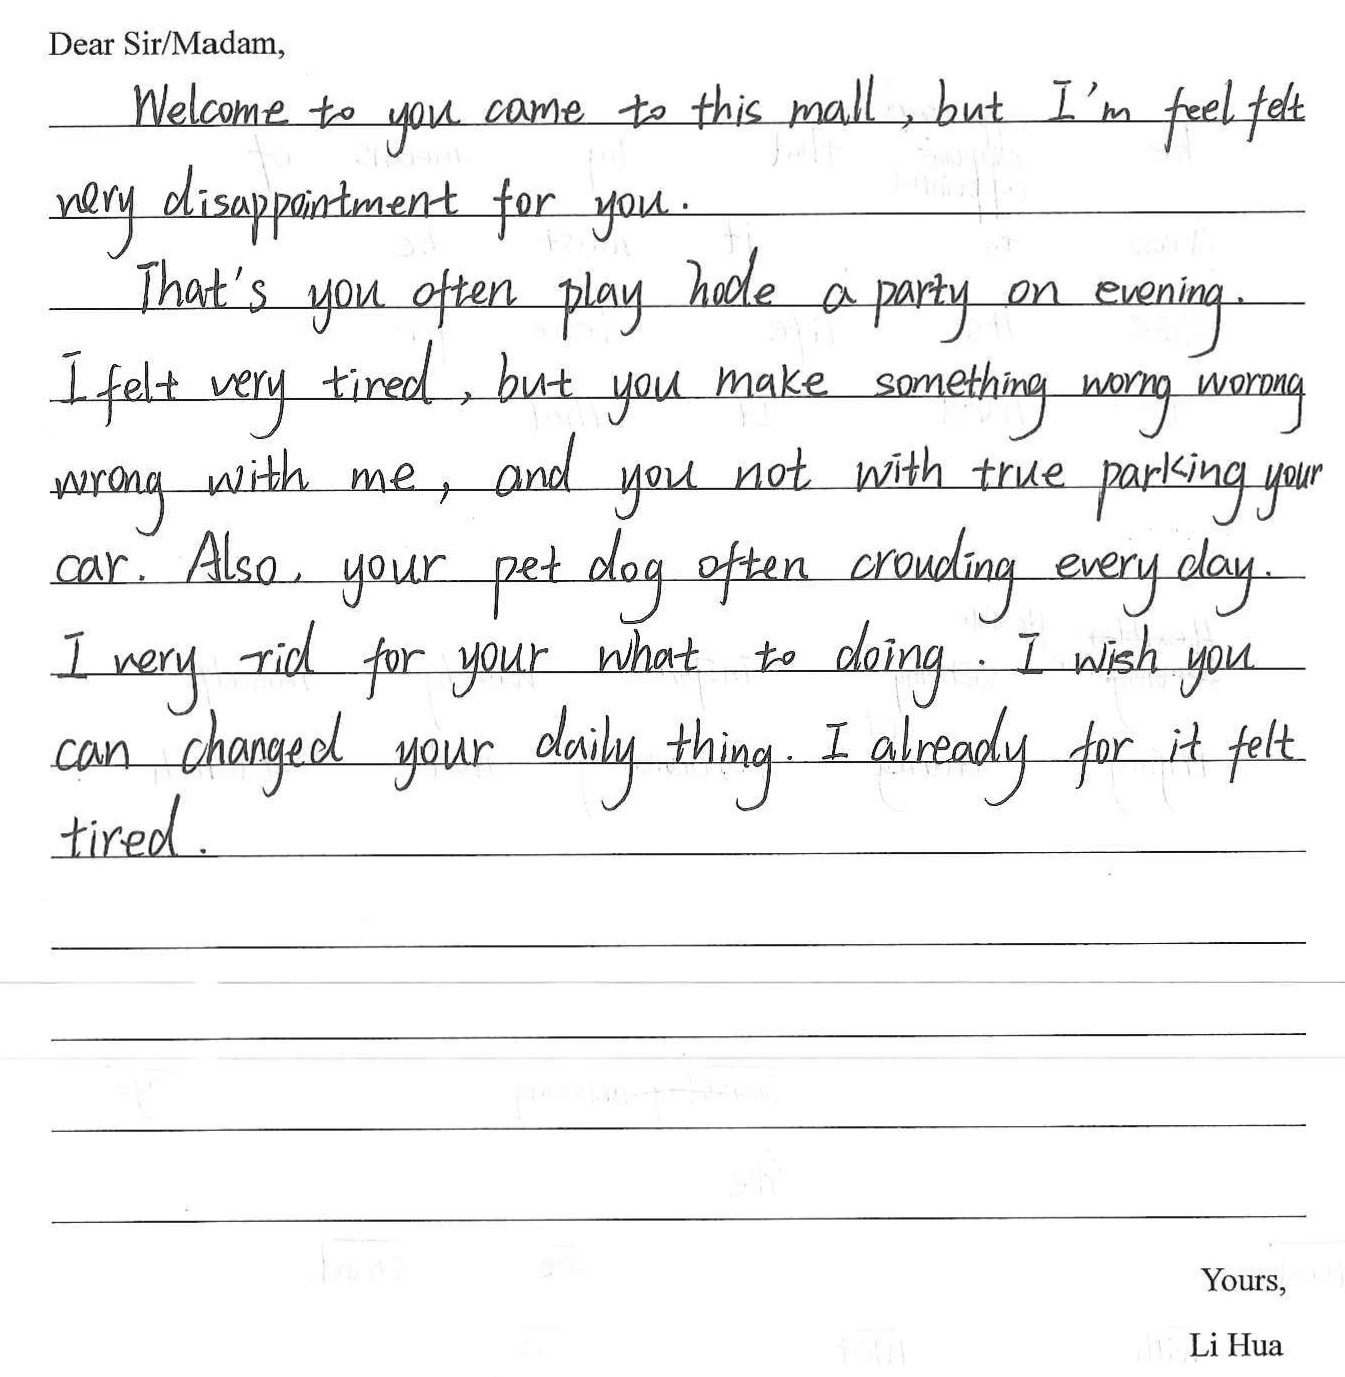 Dear Sir/Madam,
Welcome to you came to this mall, but I'm feel felt
very disappointment for you.
That's you often play hode a party on evening.
I felt very tired, but you make something worng worong
wrong with me, and you not with true parking your
car. Also, your pet dog often crouding every day.
I very rid for your what to doing. I wish you
can changed your daily thing. I already for it felt
tired.
Yours,
Li Hua